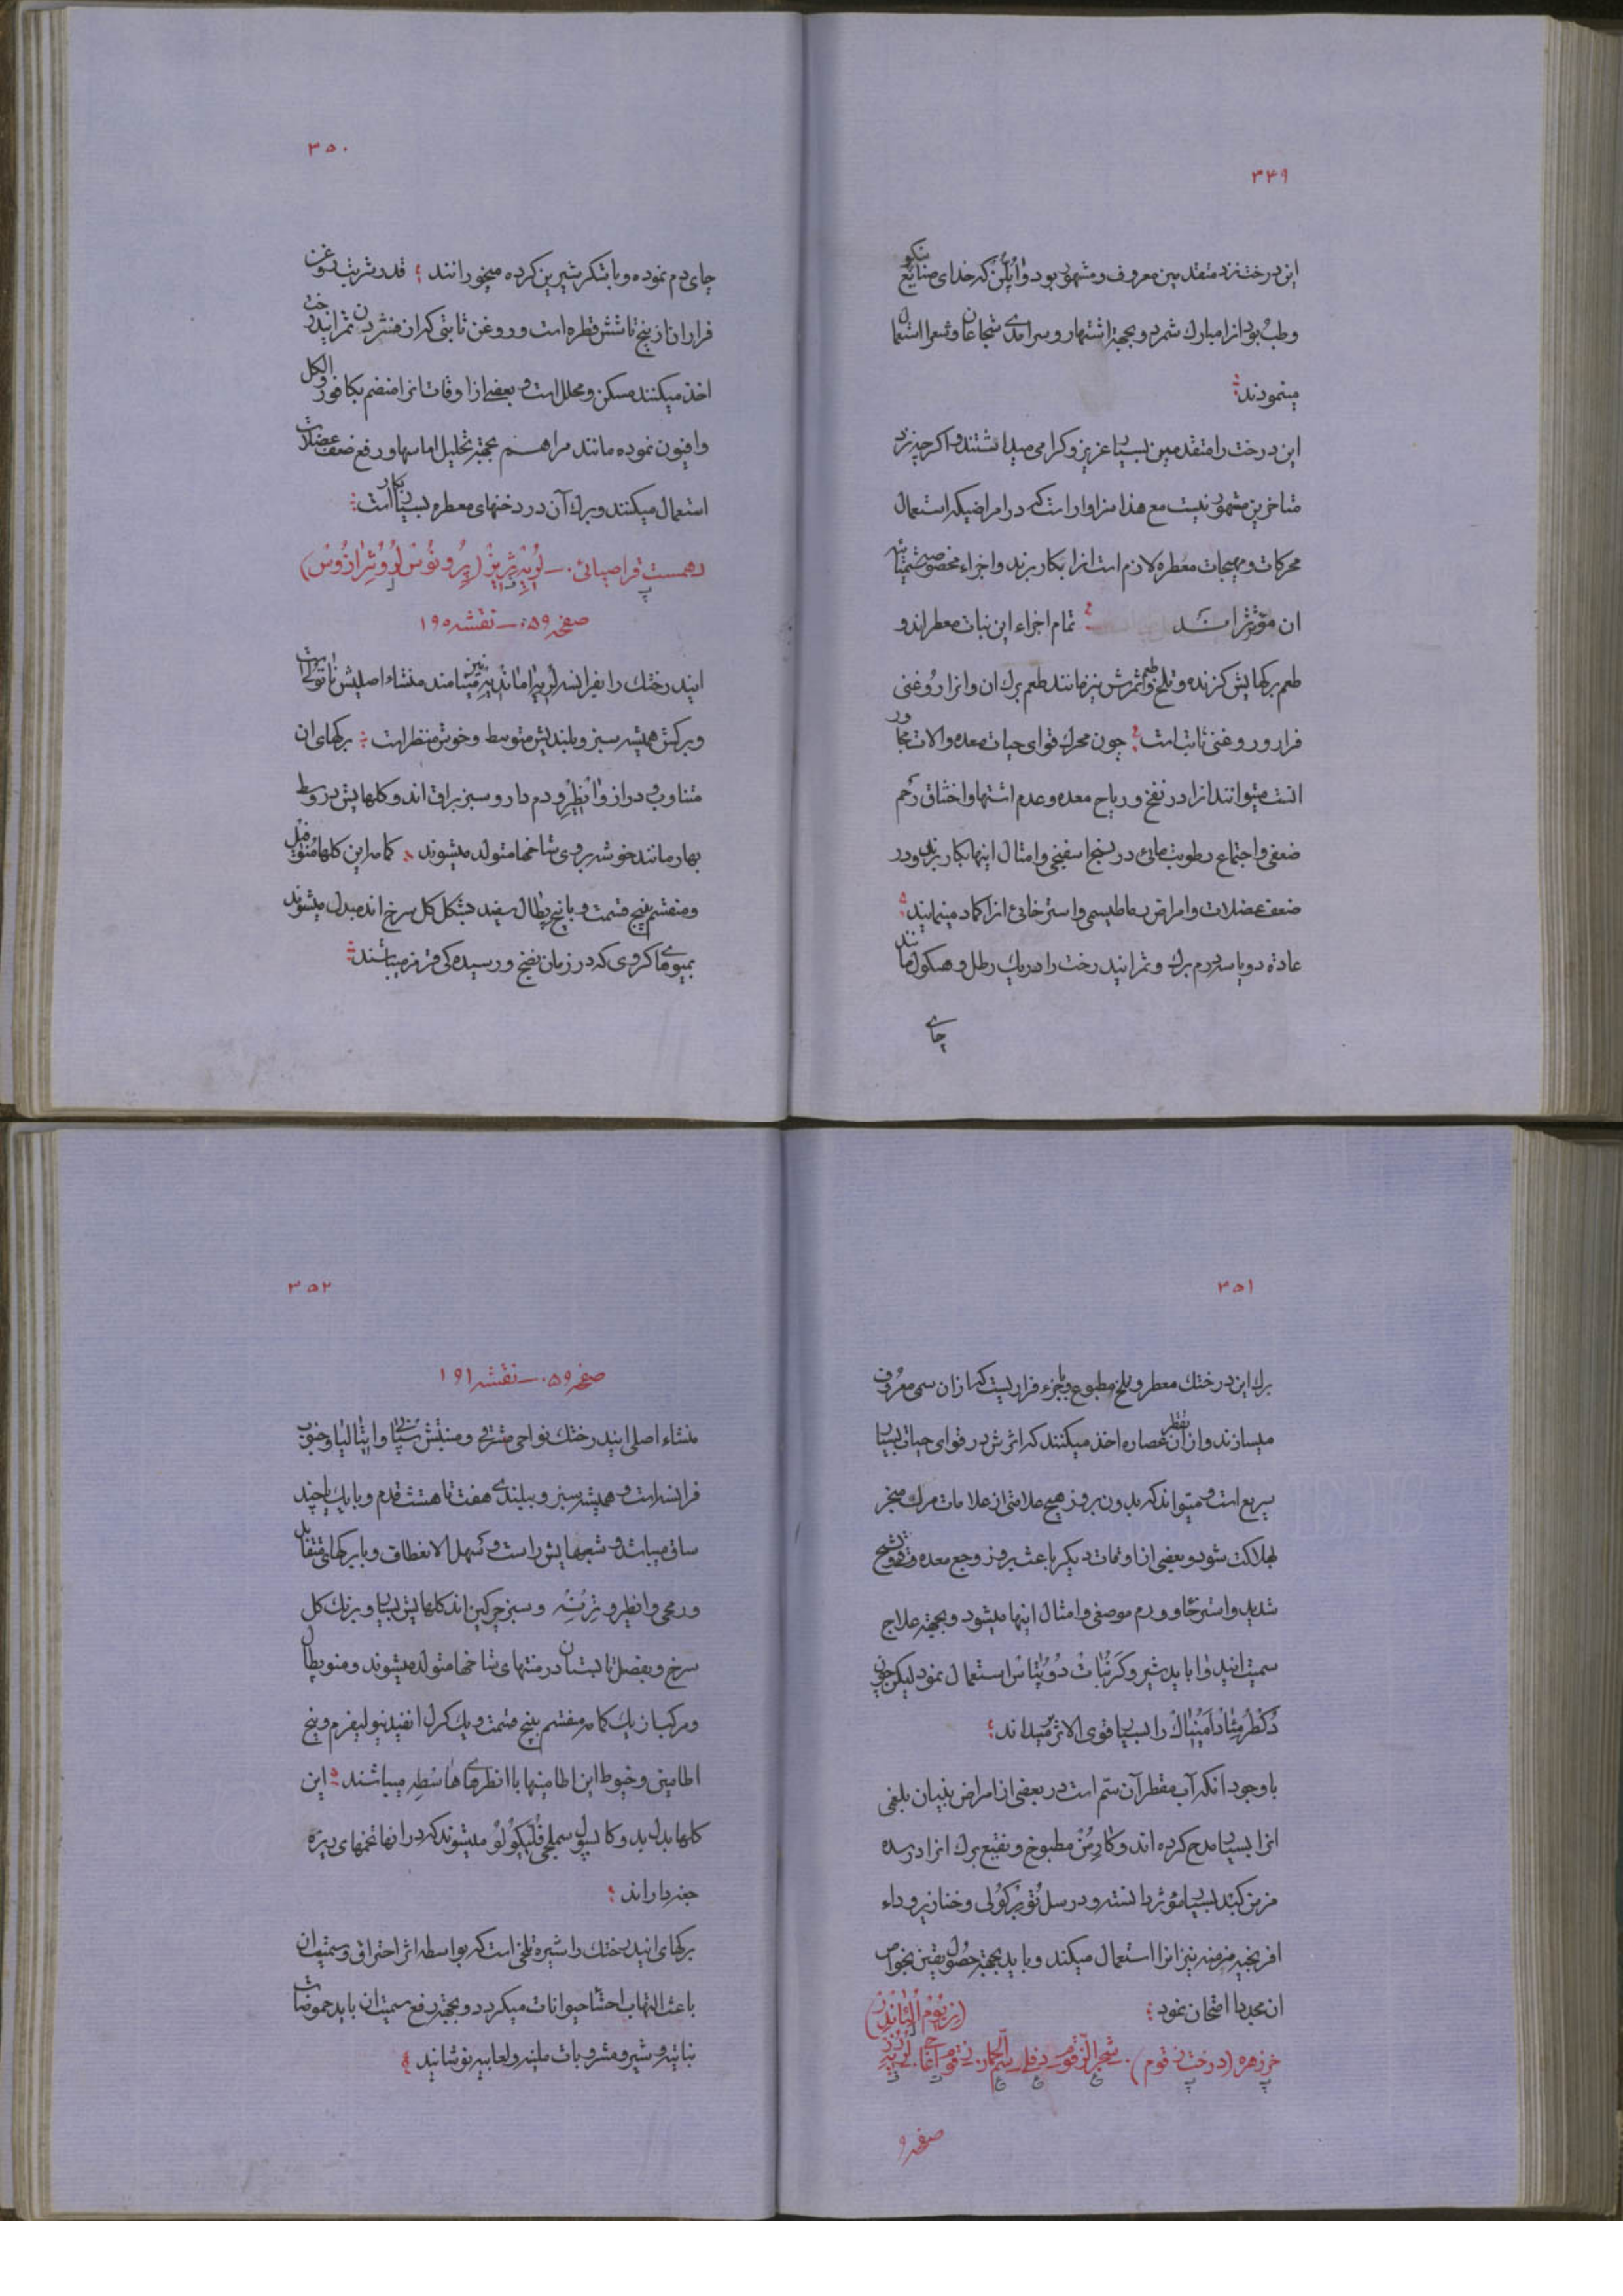 ۳۴۹
این درخت نزد متقدمین معروف و مشهور بود و اپلن که خدای صنایع نیکو
و طب بود انرا مبارك شمرد و بجهة اشتهار و سرامدی شجاعان و شعرا استعمال
مینمودند
این درخت را متقدمین بسیار عزیز و کرامی میداشتند و اکرچه نزد
متاخرین مشهور نیست مع هذا سزاوار است که در امراضیکه استعمال
محرکات و مهیجات معطره لازم است انرا بکار برند و اجزاء مخصوصه شیمیائیه
ان مؤثر اند تمام اجزاء این نبات معطر اند و
طعم برکهایش کزنده و تلخ و طعم ثمرش نیز مانند طعم برك ان و انرا روغنی
فرار و روغنی ثابت است چون محرك قوای حیات معده و الات مجاور
انست میتوانند انرا در نفخ و ریاح معده و عدم اشتها و اختناق رحم
ضعفی و اجتماع رطوبت مائی در نسج اسفنجی و امثال اینها بکار برند و در
ضعف عضلات و امراض رماطیسمی و استرخائی انرا کماد مینمایند
عادة دو یا سه درم برك و ثمر ایندرخت را در یك رطل و همکول مانند
چای
۳۵۰
چای دم نموده و با شکر شیرین کرده میخورانند قدر شربت روغن
فرار ان از پنج تا شش قطره است و روغن ثابتی که از فشردن ثمر ایندرخت
اخذ میکنند مسکن و محلل است و بعضی از اوقات انرا منضم بکافور و الکل
و افیون نموده مانند مراهم بجهة تحلیل اماسها و رفع ضعف عضلات
استعمال میکنند و برك آن در دخنهای معطره بسیار بکار است
دهمست قراصیائی. ــ لوریه سریز (پرونوس لروسرازوس)
صفحه ۵۹ ــ نقشه ۱۹۰
ایندرختك را بفرانسه لریه امانديه نیز مینامند منشاء اصلیش ناتولی است
و برکش همیشه سبز و بلندیش متوسط و خوش منظر است برکهای ان
متناوب و دراز و انطیر و دم دار و سبز براق اند و کلهایش در وسط
بهار مانند خوشه بر روی شاخها متولد میشوند کاسه این کلها منوفیل
و منقسم به پنج قسمت و با پنج پطال سفید بشکل کل سرخ اند مبدل میشوند
بمیوهای کروی که در زمان نضج و رسیدکی قرمز میباشند
۳۵۱
برك این درختك معطر و تلخ مطبوع و با جزء فراریست که از ان سمی معروف
میسازند و از ان بتقطیر عصاره اخذ میکنند که اثرش در قوای حیات بسیار
سریع است و میتواند که بدون بروز هیچ علامتی از علامات مرك منجر
بهلاکت شود و بعضی از اوقات دیکر باعث بروز وجع معده و قی و تشنج
شدید و استرخا و ورم موضعی و امثال اینها میشود و بجهة علاج
سمیت ایندوا باید شیر و کربنات دو پتاس استعمال نمود لیکن چون
دکطر مثاد آمنیاك را بسیار قوی الاثر میداند
با وجود انکه آب مقطر آن سم است در بعضی از امراض بنیان بلغمی
انرا بسیار مدح کرده اند و کارمن مطبوخ و نقیع برك انرا در سده
مزمن کبد بسیار مؤثر دانسته و در سل توبرکولی و خنازیر و داء
افرنجیه مزمنه نیز انرا استعمال میکند و باید بجهة حصول یقین بخواص
ان مجددا امتحان نمود
(نریوم الئاندر)
خرزهره (درخت زقوم). شجر الزقوم دفلی سم الحمار. زقوم اغاجی لوریه رز
صفحه ۵۹
۳۵۲
صفحه ۵۹ ــ نقشه ۱۹۱
منشاء اصلی ایندرختك نواحی مشرقی و منبتش سپانی و ایتالیا و جنوب
فرانسه است و همیشه سبز و ببلندی هفت تا هشت قدم و با یك یا چند
ساق میباشد و شعبهایش راست و سهل الانعطاف و با برکهای متقابل
و رمحی و انطیر و ترنه و سبز چرکین اند کلهایش بسیار و برنك کل
سرخ و بفصل تابستان در منتهای شاخها متولد میشوند و منوپطال
و مرکب از یك کاسه منقسم به پنج قسمت و یك کرل انفیدیبولیفرم و پنج
اطامینی و خیوط این اطامینها با انطرهای هاسطه میباشند این
کلها بدل بدو کاپسول سملحی فلیکولو میشوند که در انها تخمهای ریزه
جفه دار اند
برکهای ایندرختك را شیره تلخی است که بواسطه اثر احتراقی و سمیتیه ان
باعث التهاب احشاء حیوانات میکردد و بجهة رفع سمیت ان باید حموضات
نباتیه و شیر و مشروبات ملینه و لعابیه نوشانید